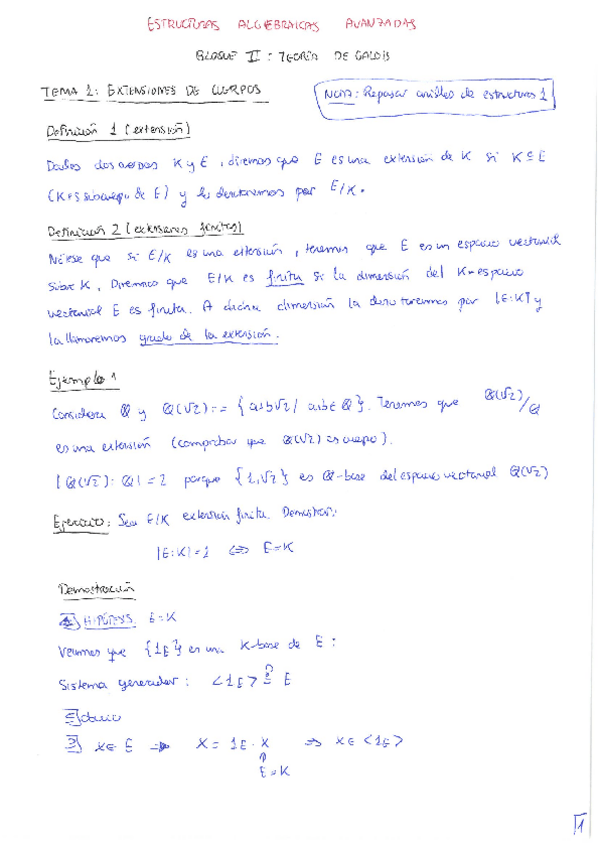 ESTRUCTURAS ALGEBRAICAS AVANZADAS
BLOQUE II : TEORÍA DE GALOIS
TEMA 1: EXTENSIONES DE CUERPOS
NOTA: Repasar anillos de estructuras 1
Definición 1 (extensión)
Dados dos cuerpos K y E, diremos que E es una extensión de K si K ⊆ E
(K es subcuerpo de E) y lo denotaremos por E/K.
Definición 2 (extensiones finitas)
Nótese que si E/K es una extensión, tenemos que E es un espacio vectorial
sobre K. Diremos que E/K es finita si la dimensión del K-espacio
vectorial E es finita. A dicha dimensión la denotaremos por |E:K| y
la llamaremos grado de la extensión.
Ejemplo 1
Considera ℚ y ℚ(√2) := {a+b√2 / a,b ∈ ℚ}. Tenemos que ℚ(√2)/ℚ
es una extensión (comprobar que ℚ(√2) es cuerpo).
|ℚ(√2): ℚ| = 2 porque {1,√2} es ℚ-base del espacio vectorial ℚ(√2)
Ejercicio: Sea E/K extensión finita. Demostrar:
|E:K|=1 ⇔ E=K
Demostración
⇐) HIPÓTESIS E=K
Veamos que {1E} es una K-base de E :
Sistema generador: <1E> =? E
⊆) obvio
⊇) x ∈ E ⇒ x = 1E · x ⇒ x ∈ <1E>
↑
E=K
1